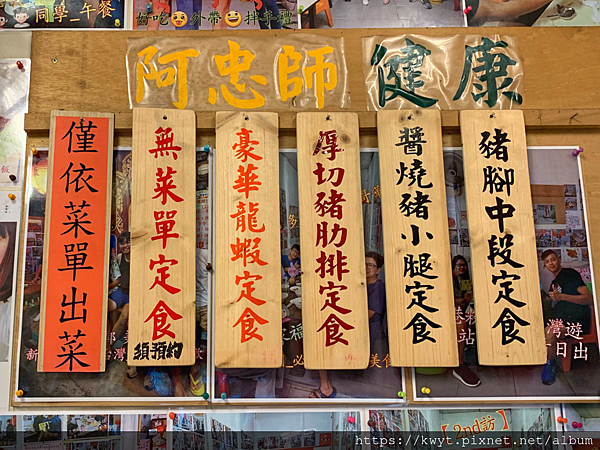 同學_午餐
好吃 外帶 拌辛醬
阿忠師 健康
僅依菜單出菜
無菜單定食
須預約
豪華龍蝦定食
厚切豬肋排定食
醬燒豬小腿定食
豬腳中段定食
灣遊
日出
【2nd訪】
https://kwyt.pixnet.net/album